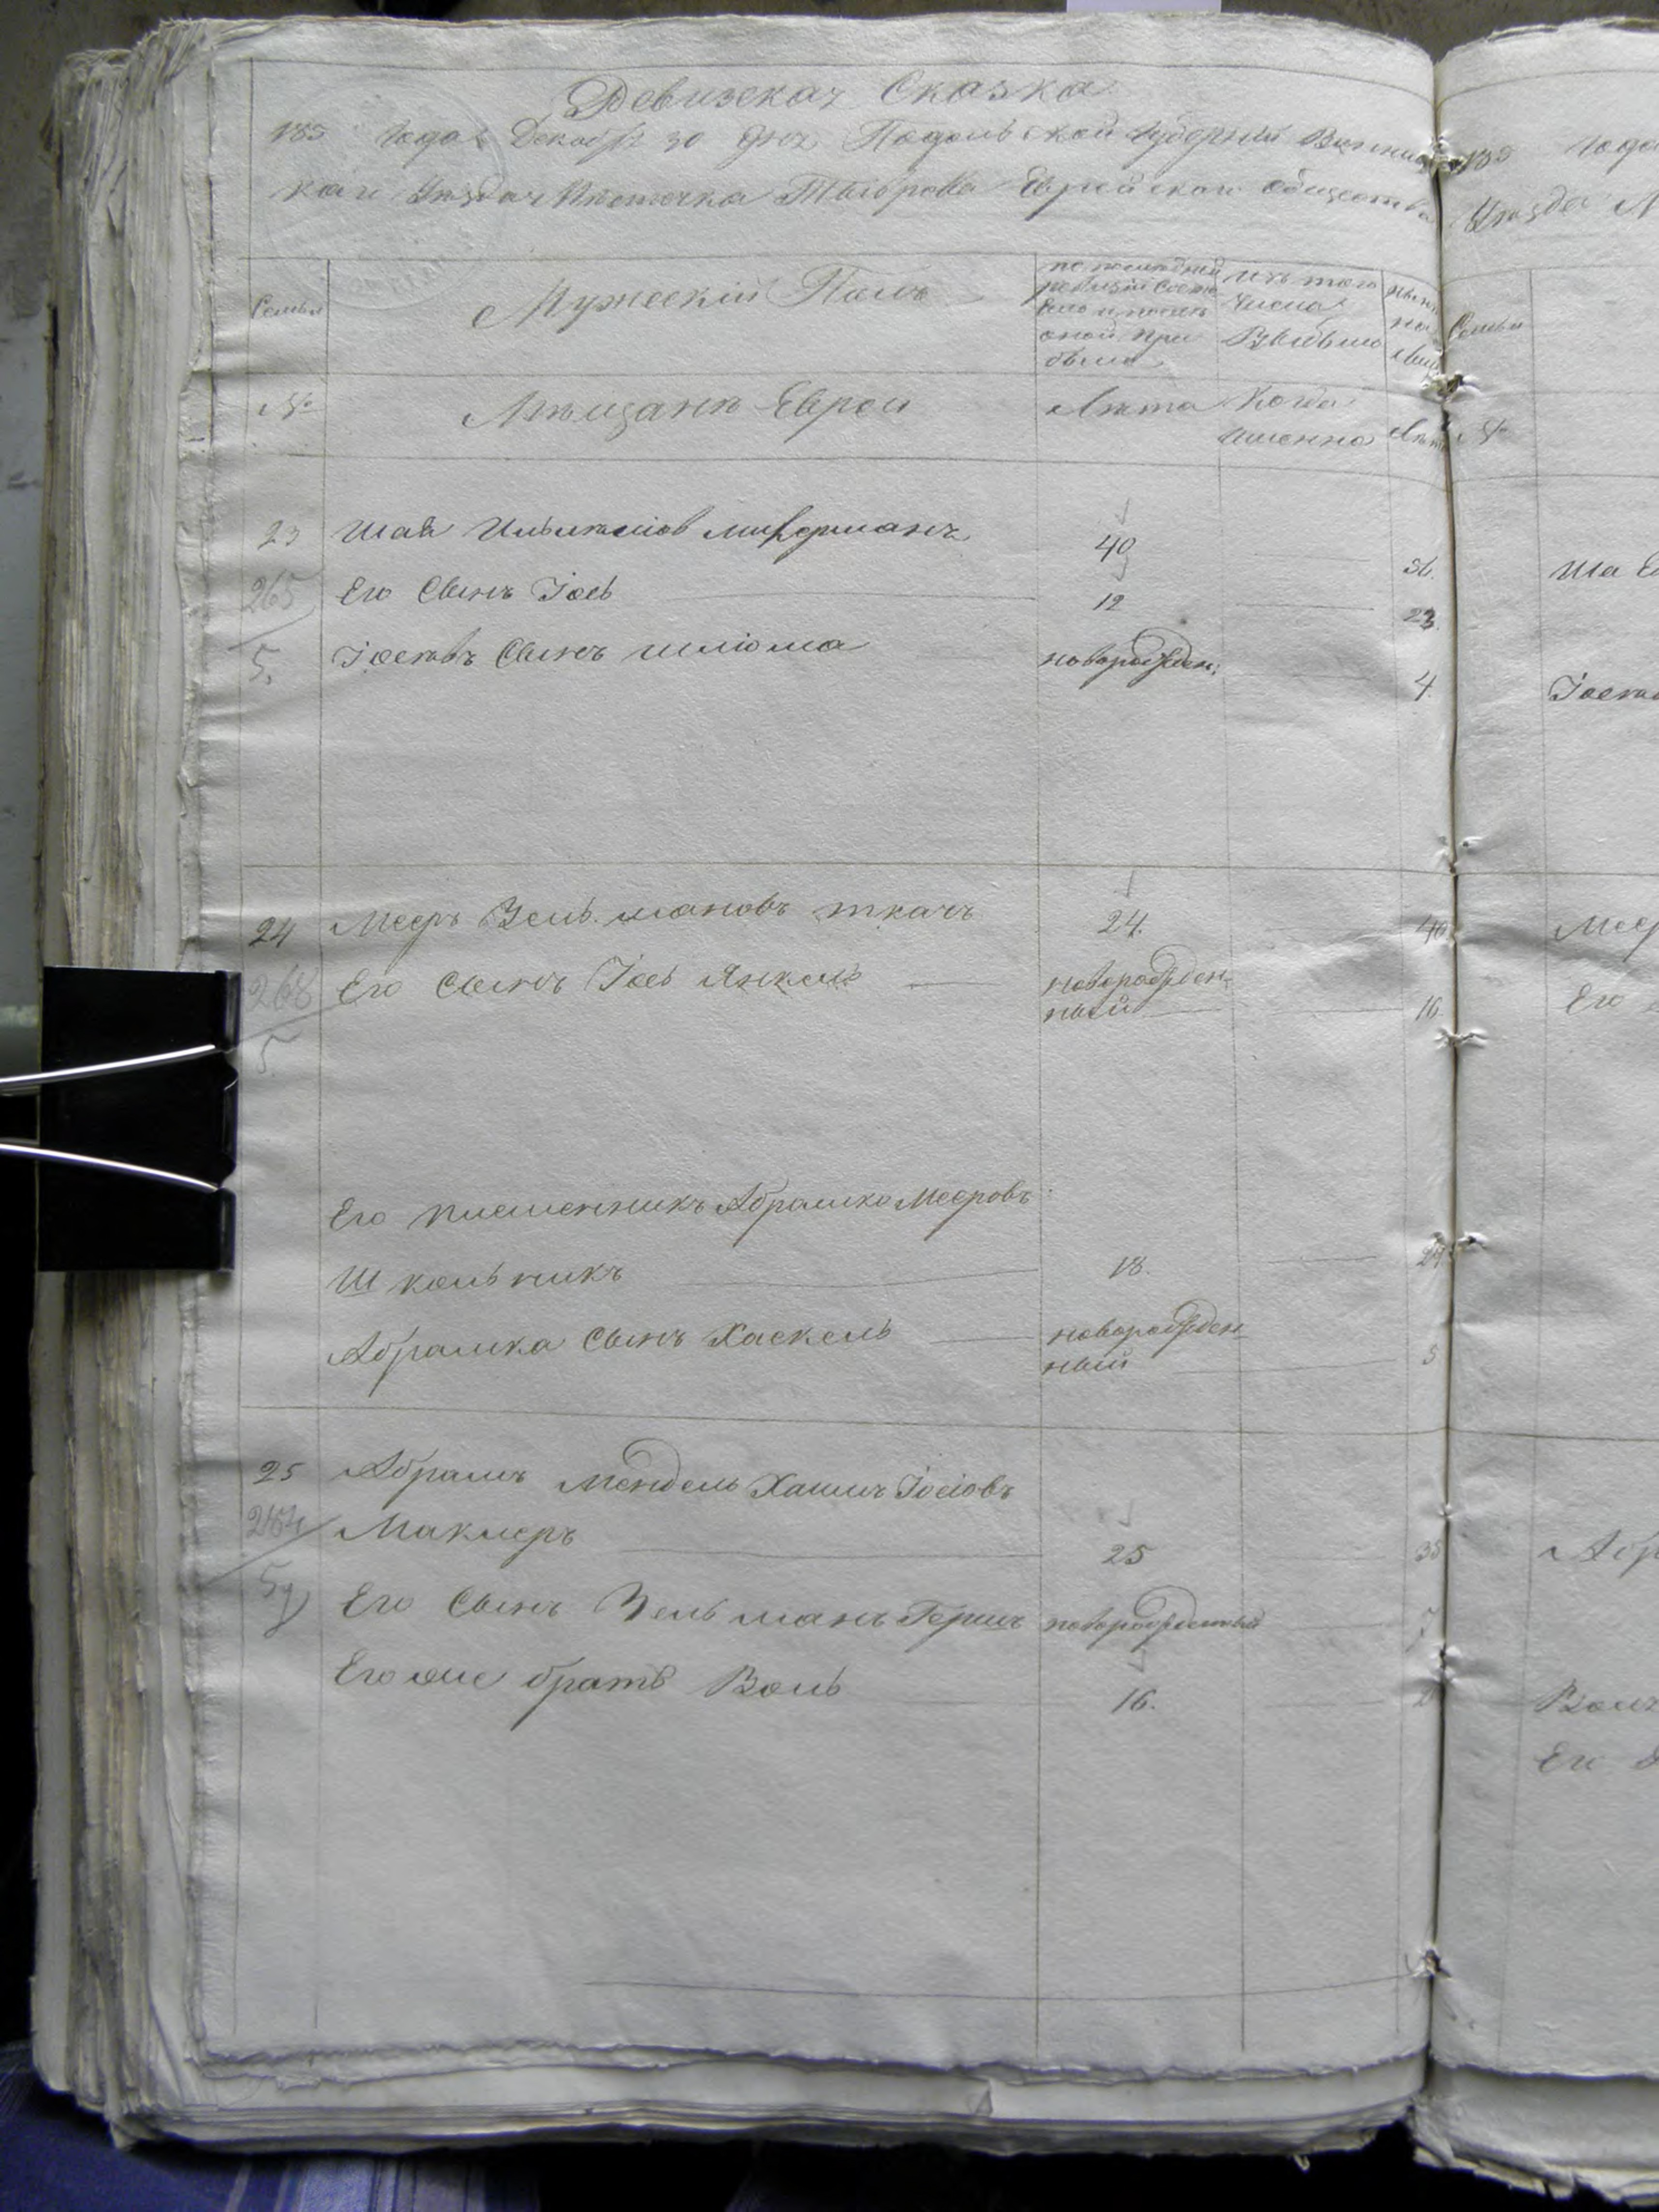 Ревизская Сказка
185 года Декабря 30 дня Подольской Губернии Винниц
каго Уѣзда Мѣстечка Тыврова Еврейскаго общества
Семьи
Мужескій Полъ
по послѣдней ревизіи состояло и послѣ оной прибыло
изъ того числа выбыло
нынѣ на лицо
№
Мѣщане Евреи
Лѣта
Когда именно
Лѣта
23 Шая Ильмановъ 40
265 Его Сынъ Іось 12 23
5. Іосевъ Сынъ Шліома новорожден: 4.
24 Мееръ Зельмановъ ткачъ 24. 40
268 Его Сынъ Іось Янкель новорожден
ный 16
5.
Его племенникъ Абрамко Мееровъ
Школьникъ 18.
Абрамка Сынъ Хаскель новорожден
ный 5
25 Абрамъ Мендель Хаимъ Іосіовъ
264 Маклеръ 25 35
Его Сынъ Зельманъ Гершъ новорожденный 7
Его же братъ Воль 16.
185 года
Уѣзда М
Семьи
№
Его
Его